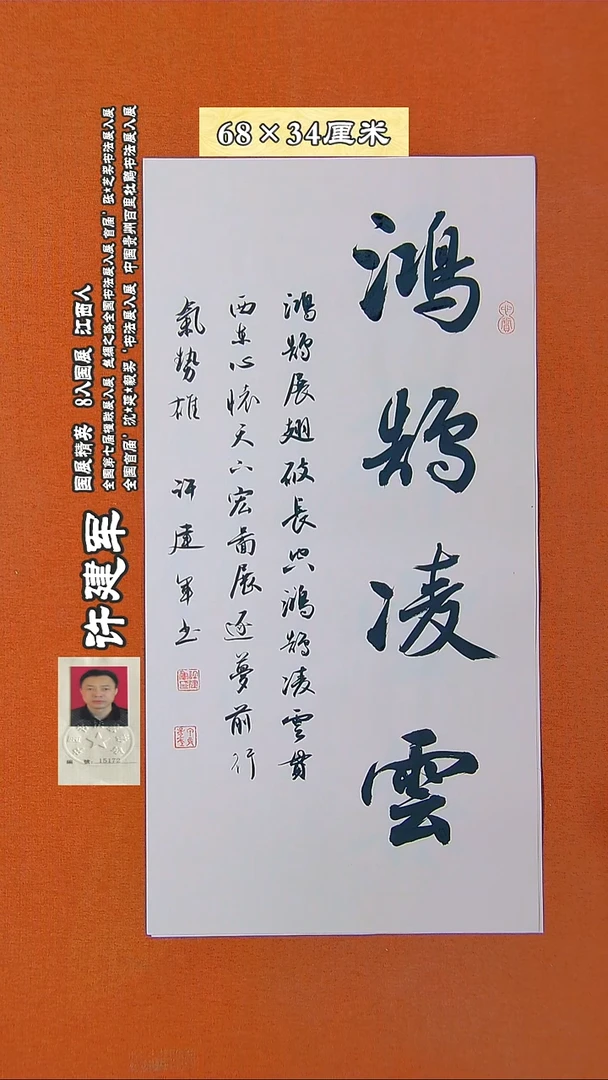 68×34厘米
鸿鹄凌雲
鸿鹄展翅破长空鸿鹄凌雲贯
西东心怀天下宏图展逐梦前行
氣势雄 许建军书
许建军
国展精英 8入国展 江西人
全国第七届楹联展入展 丝绸之路全国书法展入展 首届'张★芝奖书法展入展
全国首届'沈★延★毅奖'书法展入展 中国贵州百里杜鹃书法展入展
编 号: 15172